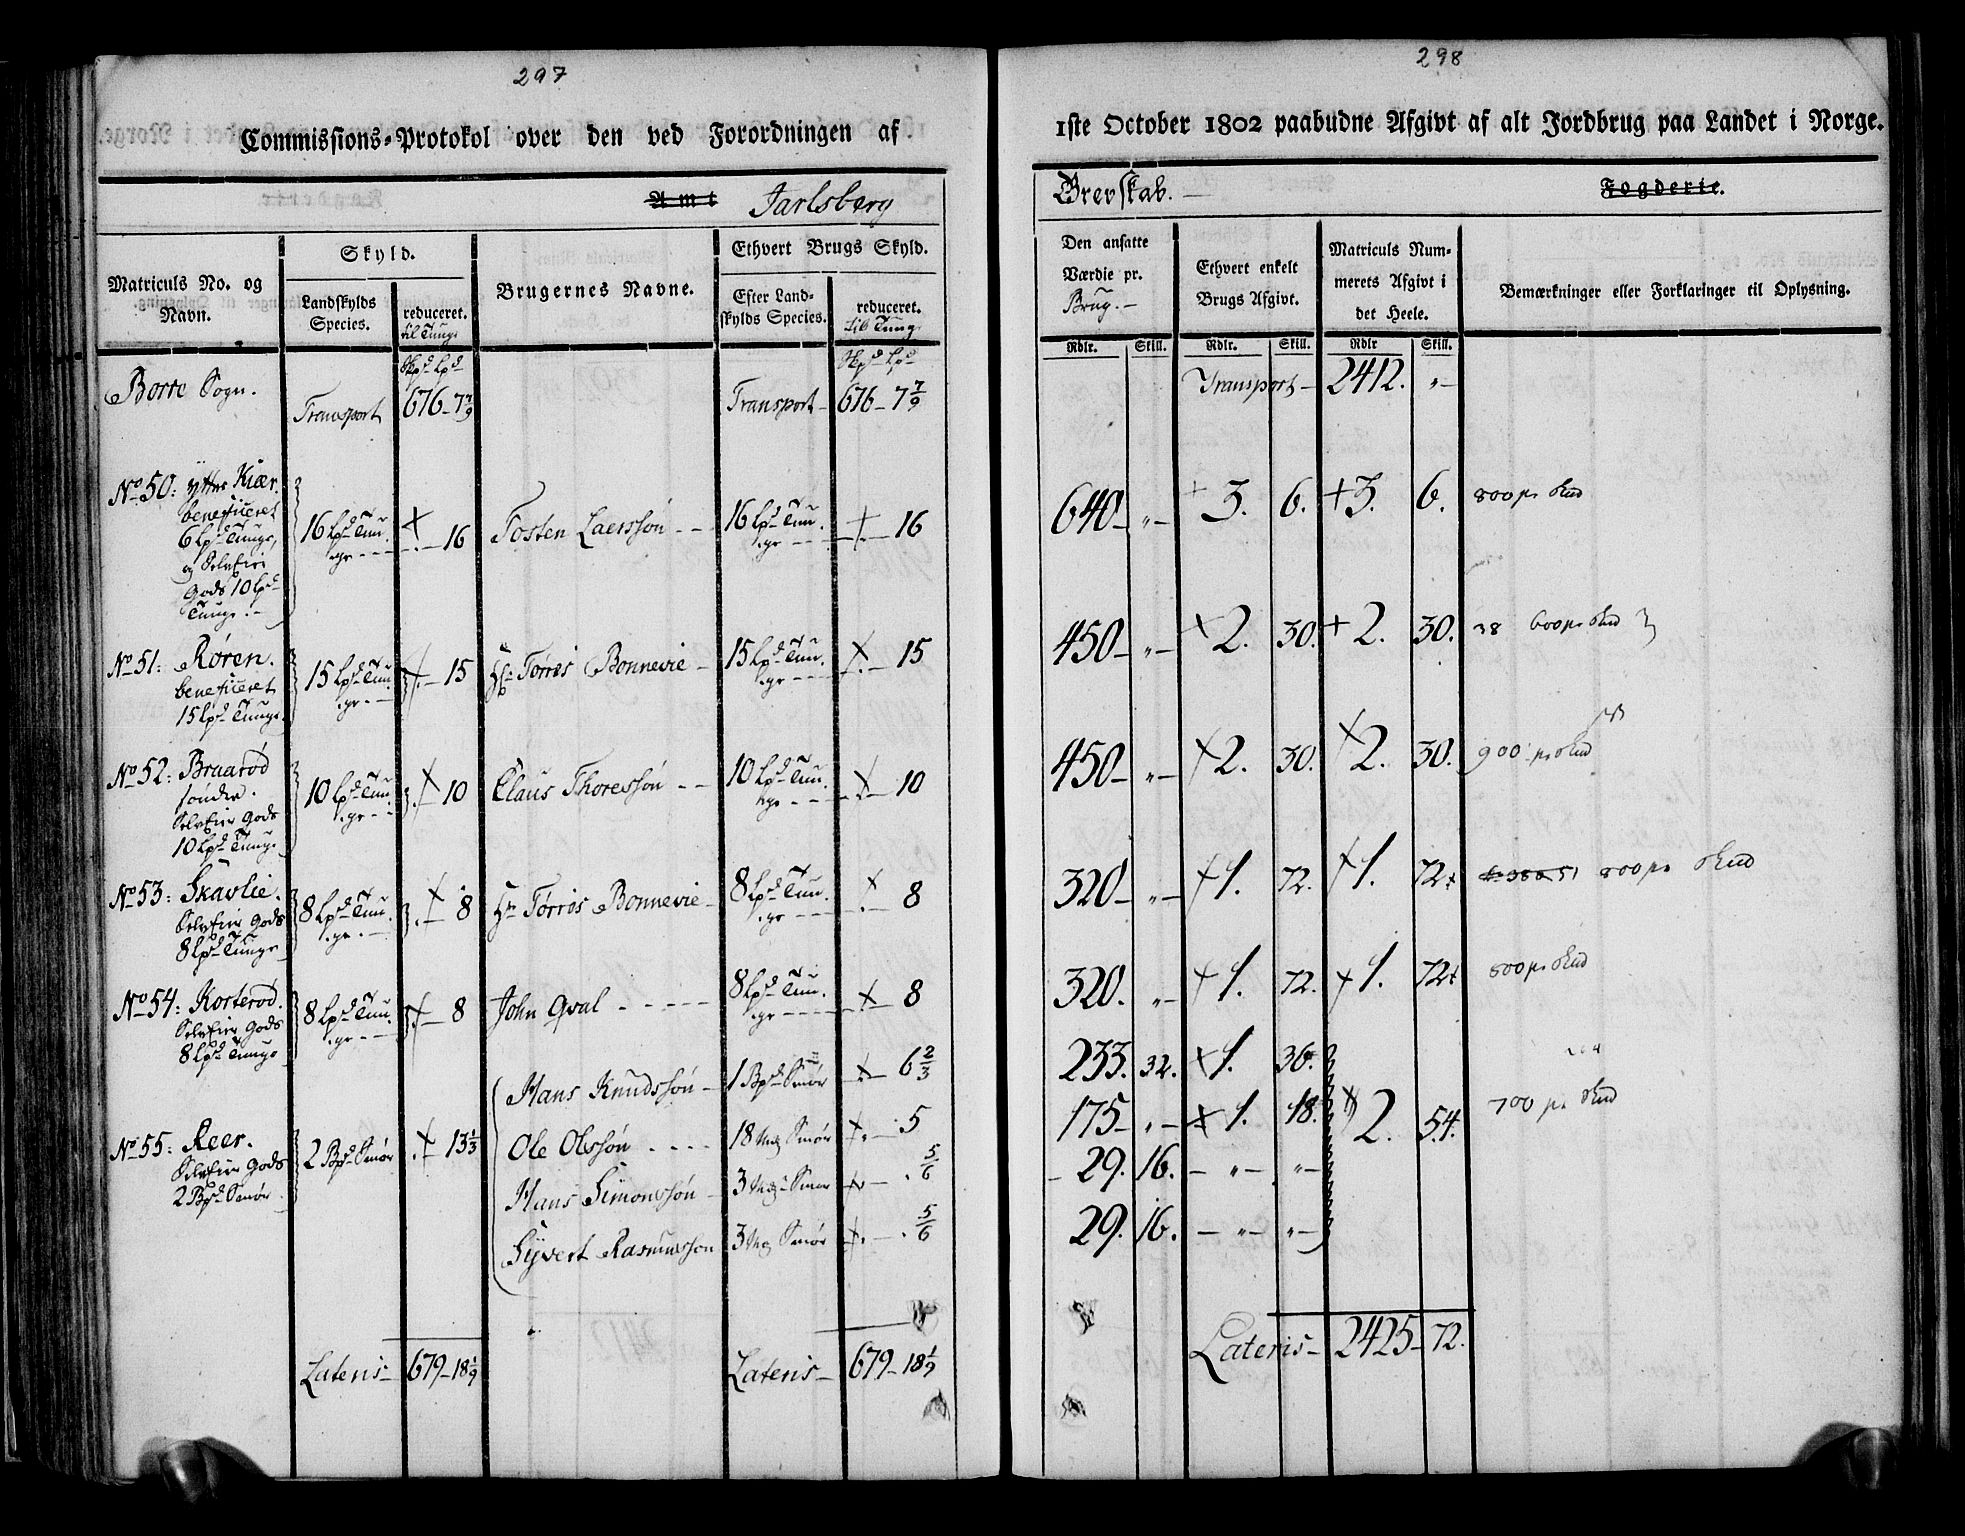 297
Commissions-Protokol over den ved Forordningen af
Amt Jarlsberg
Matriculs No. og Navn.
Skyld.
Landskylds Species.
reduceret.
til Tunge
Brugernes Navne.
Ethvert Brugs Skyld.
Efter Landskylds Species.
reduceret.
til Tung.
Borre Sogn.
Transport
Skpd Lpd
676-7 7/9
Transport-
Skpd Lpd
676-7 7/9
No 50: ytter Kiær.
beneficeret
6 Lpd Tunge,
og Selveier
Gods 10 Lpd
Tunge.-
16 Lpd Tun
ge - - -
16
Tosten Laerssøn - -
16 Lpd Tun.
ge - - -
16
No 51: Røren.
beneficeret
15 Lpd Tunge.
15 Lpd Tun.
ge - -
15
Hr Torres Bonnevie -
15 Lpd Tun.
ge - - -
15
No 52: Bruarød
søndre.
Selveier Gods
10 Lpd Tunge
10 Lpd Tun
ge - -
10
Claus Thoressøn - -
10 Lpd Tun
ge - - -
10
No 53: Skavlie.
Selveier Gods
8 Lpd Tunge
8 Lpd Tun.
ge - -
8
Hr Torres Bonnevie -
8 Lpd Tun.
ge - - -
8
No 54: Korterød.
Selveier Gods
8 Lpd Tunge
8 Lpd Tun.
ge - -
8
John Qval - - - - -
8 Lpd Tun.
ge - - -
8
No 55: Reer.
Selveier Gods
2 Bpd Smør.
2 Bpd Smør
13 1/3
Hans Knudssøn -
1 Bpd Smør
6 2/3
Ole Olssøn - - - -
18 Mrk Smør
5
Hans Simonssøn -
3 Mrk Smør
5/6
Syvert Rasmussøn
3 Mrk Smør
5/6
Lateris-
679-18 1/9
Lateris-
679-18 1/9
298
1ste October 1802 paabudne Afgivt af alt Jordbrug paa Landet i Norge.
Grevskab.-
Fogderie.
Den ansatte Værdie pr.
Brug.-
Ethvert enkelt Brugs Afgivt.
Matriculs Nummerets Afgivt i det Heele.
Bemærkninger eller Forklaringer til Oplysning.
Rdlr. Skill. Rdlr. Skill. Rdlr Skill.
Transport- 2412. „-
640- „- 3. 6. 3. 6. 800 pr Skud
450- „- 2. 30. 2. 30. 38 600 pr Skud
450- „- 2. 30. 2. 30. 900 pr Skud
320- „- 1. 72. 1. 72. 800 pr Skud
320. „- 1. 72. 1. 72 800 pr Skud
233. 32. 1. 36.
175- „- 1. 18. 2. 54. 700 pr Skud
29. 16. - „- „-
29. 16. - „- „-
Lateris- 2425- 72.